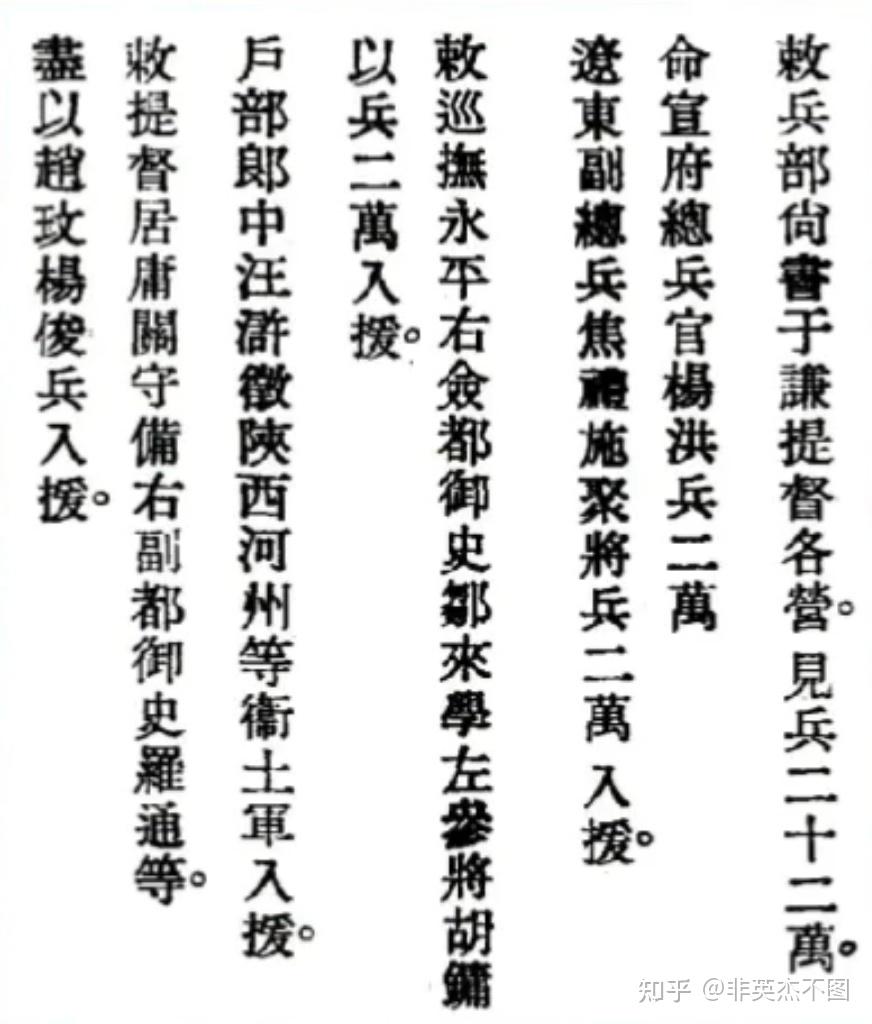 敕兵部尙書于謙提督各營。見兵二十二萬。
命宣府總兵官楊洪兵二萬
遼東副總兵焦禮施聚將兵二萬入援。
敕巡撫永平右僉都御史鄒來學左參將胡鏞
以兵二萬入援。
戶部郎中汪滸徵陝西河州等衞土軍入援。
敕提督居庸關守備右副都御史羅通等。
盡以趙玟楊俊兵入援。
知乎 @非英杰不图